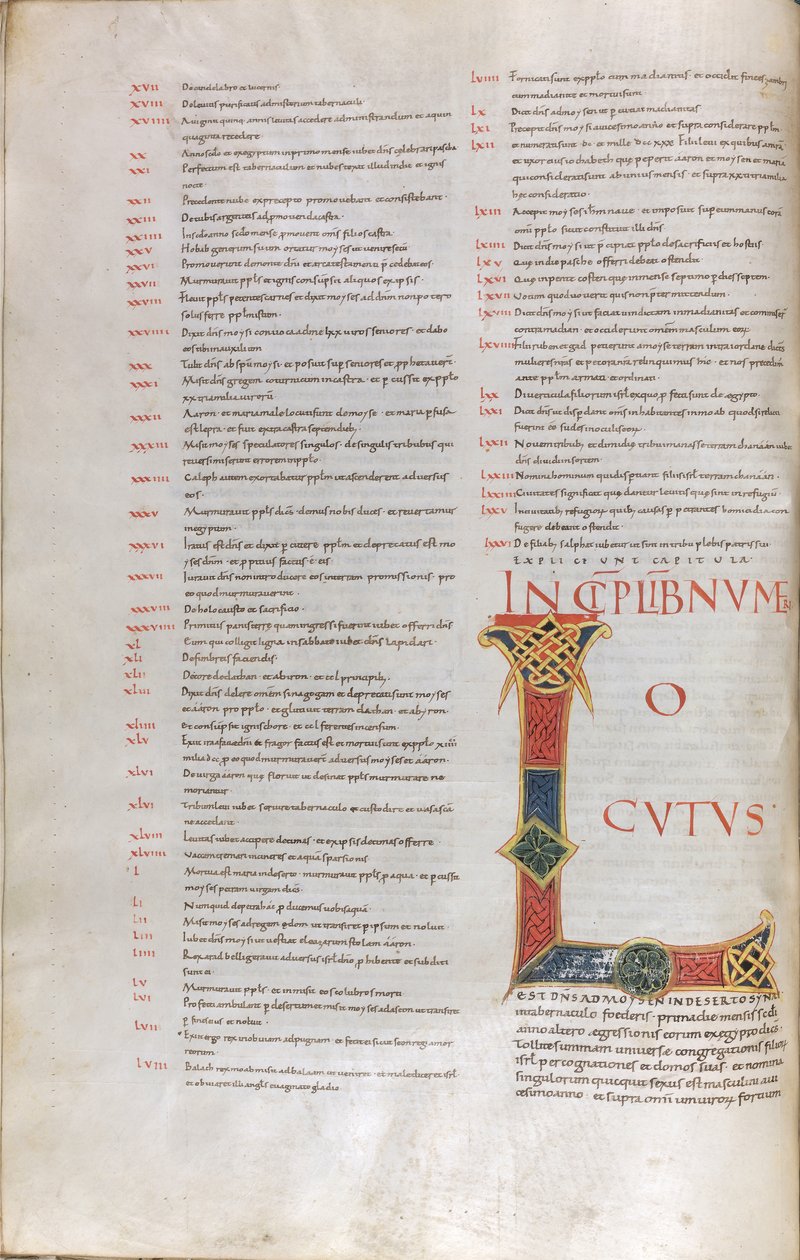 XVII De candelabro et lucernis
XVIII De leuitis purificatis ad ministerium tabernaculi
XVIIII A uiginti quinq; annis leuitas accedere administrandum et a quin
quaginta recedere
XX Anno scdo et ex egypto in primo mense iubet dns celebrari pascha
XXI Perfectum est tabernaculum et nubes texit illud in die et ignis
nocte
XXII Precedente nube ex precepto promouebant et consistebant
XXIII De tubis argenteis ad promouenda castra
XXIIII In scdo anno scdo mense promouent oms filios castra
XXV Hobab generum suum ortatur moyses ut uenire secu
XXVI Promouerunt de monte dni et arca testamenti p cedebat eos
XXVII Murmurauit ppls et ignis consupsit aliquos ex ipsis
XXVIII Fleuit ppls petentes carnes et dixit moyses ad dnm non potero
solus ferre pplm istum
XXVIIII Dixit dns moysi conuoca ad me lxx uiros seniores et dabo
eos tibi in auxilium
XXX Tulit dns ab spu moysi et posuit sup seniores et prophetauert
XXXI Misit dns gregem coturnicum in castra et p cussit ex pplo
XX tria milia uirorum
XXXII Aaron et maria male locuti sunt de moyse et maria p fusa
est lepra et fuit extra castra septem dieb;
XXXIII Misit moyses speculatores singulos de singulis tribubus qui
reuersi miserunt errorem in pplo
XXXIIII Caleph autem exortabatur pplm ut ascenderent aduersus
eos
XXXV Murmurauit ppls dices domus nobis duces et reuertamur
in egyptum
XXXVI Iratus est dns et dixit p cutere pplm et deprecatus est mo
yses dnm et p pitius factus e eis
XXXVII Iurauit dns non introducere eos in terram promissionis pro
eo quod murmurauerint
XXXVIII De holocausto et sacrificio
XXXVIIII Primitias panis terre quam ingressi fuerint iubet offerri dns
XL Eum qui colligit ligna in sabbato iubet dns lapidari
XLI De fimbreis faciendis
XLII De core de dathan et abiron et ccl principib;
XLIII Dixit dns delere omem sinagogam et deprecati sunt moyses
et aaron pro pplo et glutiuit terram dathan et abyron
XLIIII et consupsit ignis chore et ccl ferentes incensum
XLV Exiit ira a facie dni et fragor factus est et mortui sunt ex pplo XIIII
milia dcc p eo quod murmurauert aduersus moyses et aaron
XLVI De uirga aaron que floruit ut desinat ppls murmurare ne
moriantur
XLVI Tribum leui iubet seruire tabernaculo et custodire et uasa sca
ne accedant
XLVIII Leuitas iubet accipere decimas et ex ipsis decimas offerre
XLVIIII Vaccam cremari in cineres et aqua sparsionis
L Mortua est maria in deserto murmurauit ppls p aqua et p cussit
moyses petram uirgam dices
LI Numquid de petra hac p ducemus uobis aqua
LII Misit moyses ad regem edom ut transiret p ipsum et noluit
LIII Iubet dns moysi ut uestiat eleazarum stolam aaron
LIIII Rex arad belligerauit aduersus isrl dno p hibente et subditi
sunt ei
LV Murmurauit ppls et inmisit eos colubros mori
LVI Profecti ambulant p desertum et misit moyses ad aseon ut transiret
p fines eius et noluit
LVII Exiit ergo rex in obuiam ad pugnam et fecit ei sicut seon regi amor
reorum
LVIII Balach rex moab misit ad balaam ut ueniret et malediceret isrl
et obuiaret illi angls euaginato gladio
LVIIII Fornicati sunt ex pplo cum madianitis et occidit finees zambri
cum madianite et mortui sunt
LX Dicit dns ad moysen ut p cutiat madianitas
LXI Precepit dns moysi a uicesimo anno et supra considerare pplm
LXII et numerati sunt dc et mille dccxxx Filii leui ex quibus amra
et uxor eius iochabeth que peperit aaron et moysen et maria
qui considerati sunt ab unius mensis et supra XXti tria milia
hec consideratio
LXIII Accepit moyses ihm naue et imposuit sup eum manus cora
omi pplo sicut constituit illi dns
LXIIII Dicit dns moysi ut p cipiat pplo de sacrificiis et hostiis
LXV Que in die pasche offerri debeat ostendit
LXVI Que in pentecosten que in mense septimo p dies septem
LXVII Uotum quod uouerit quis non p termittendum
LXVIII Dicit dns moysi ut faciat uindictam in madianitas et commiser
contra madian et occiderunt omem masculum eorum
LXVIIII Filii ruben et gad petierunt a moyse terram intra iordane dicentes
mulieres nras et pecora nra relinquimus hic et nos precedimus
ante pplm armati et ordinati
LXX Diuerticula filiorum isrl ex quo p fecti sunt de aegypto
LXXI Dicit dns ut disp dant oms inhabitentes in moab quod si reliqui
fuerint eo sudes in oculis eorum
LXXII Nouem tribub; et dimidie tribui manasse terram chanaan iubet
dns diuidi in sortem
LXXIII Nomina hominum qui disp tiant filiis isrl terram chanaan
LXXIIII Ciuitates significat que dantur leuitis que sint in refugium
LXXV In ciuitatib; refugiorum quib; causas p p etrantes homicidia con
fugere debeant ostendit
LXXVI De filiab; salphat iubetur ut sint in tribu p lobis patris sui
EXPLICIUNT CAPITULA
INCIP LIB NUMERI
LO
CUTUS
EST DNS AD MOYSEN IN DESERTO SYNAI
in tabernaculo foederis prima die mensis scdi
anno altero aegressionis eorum ex egypto dices
Tollite summam uniuersae congregationis filiorum
isrl per cognationes et domos suas et nomina
singulorum quicquit sexus est masculini a ui
cesimo anno et supra omium uirorum fortium